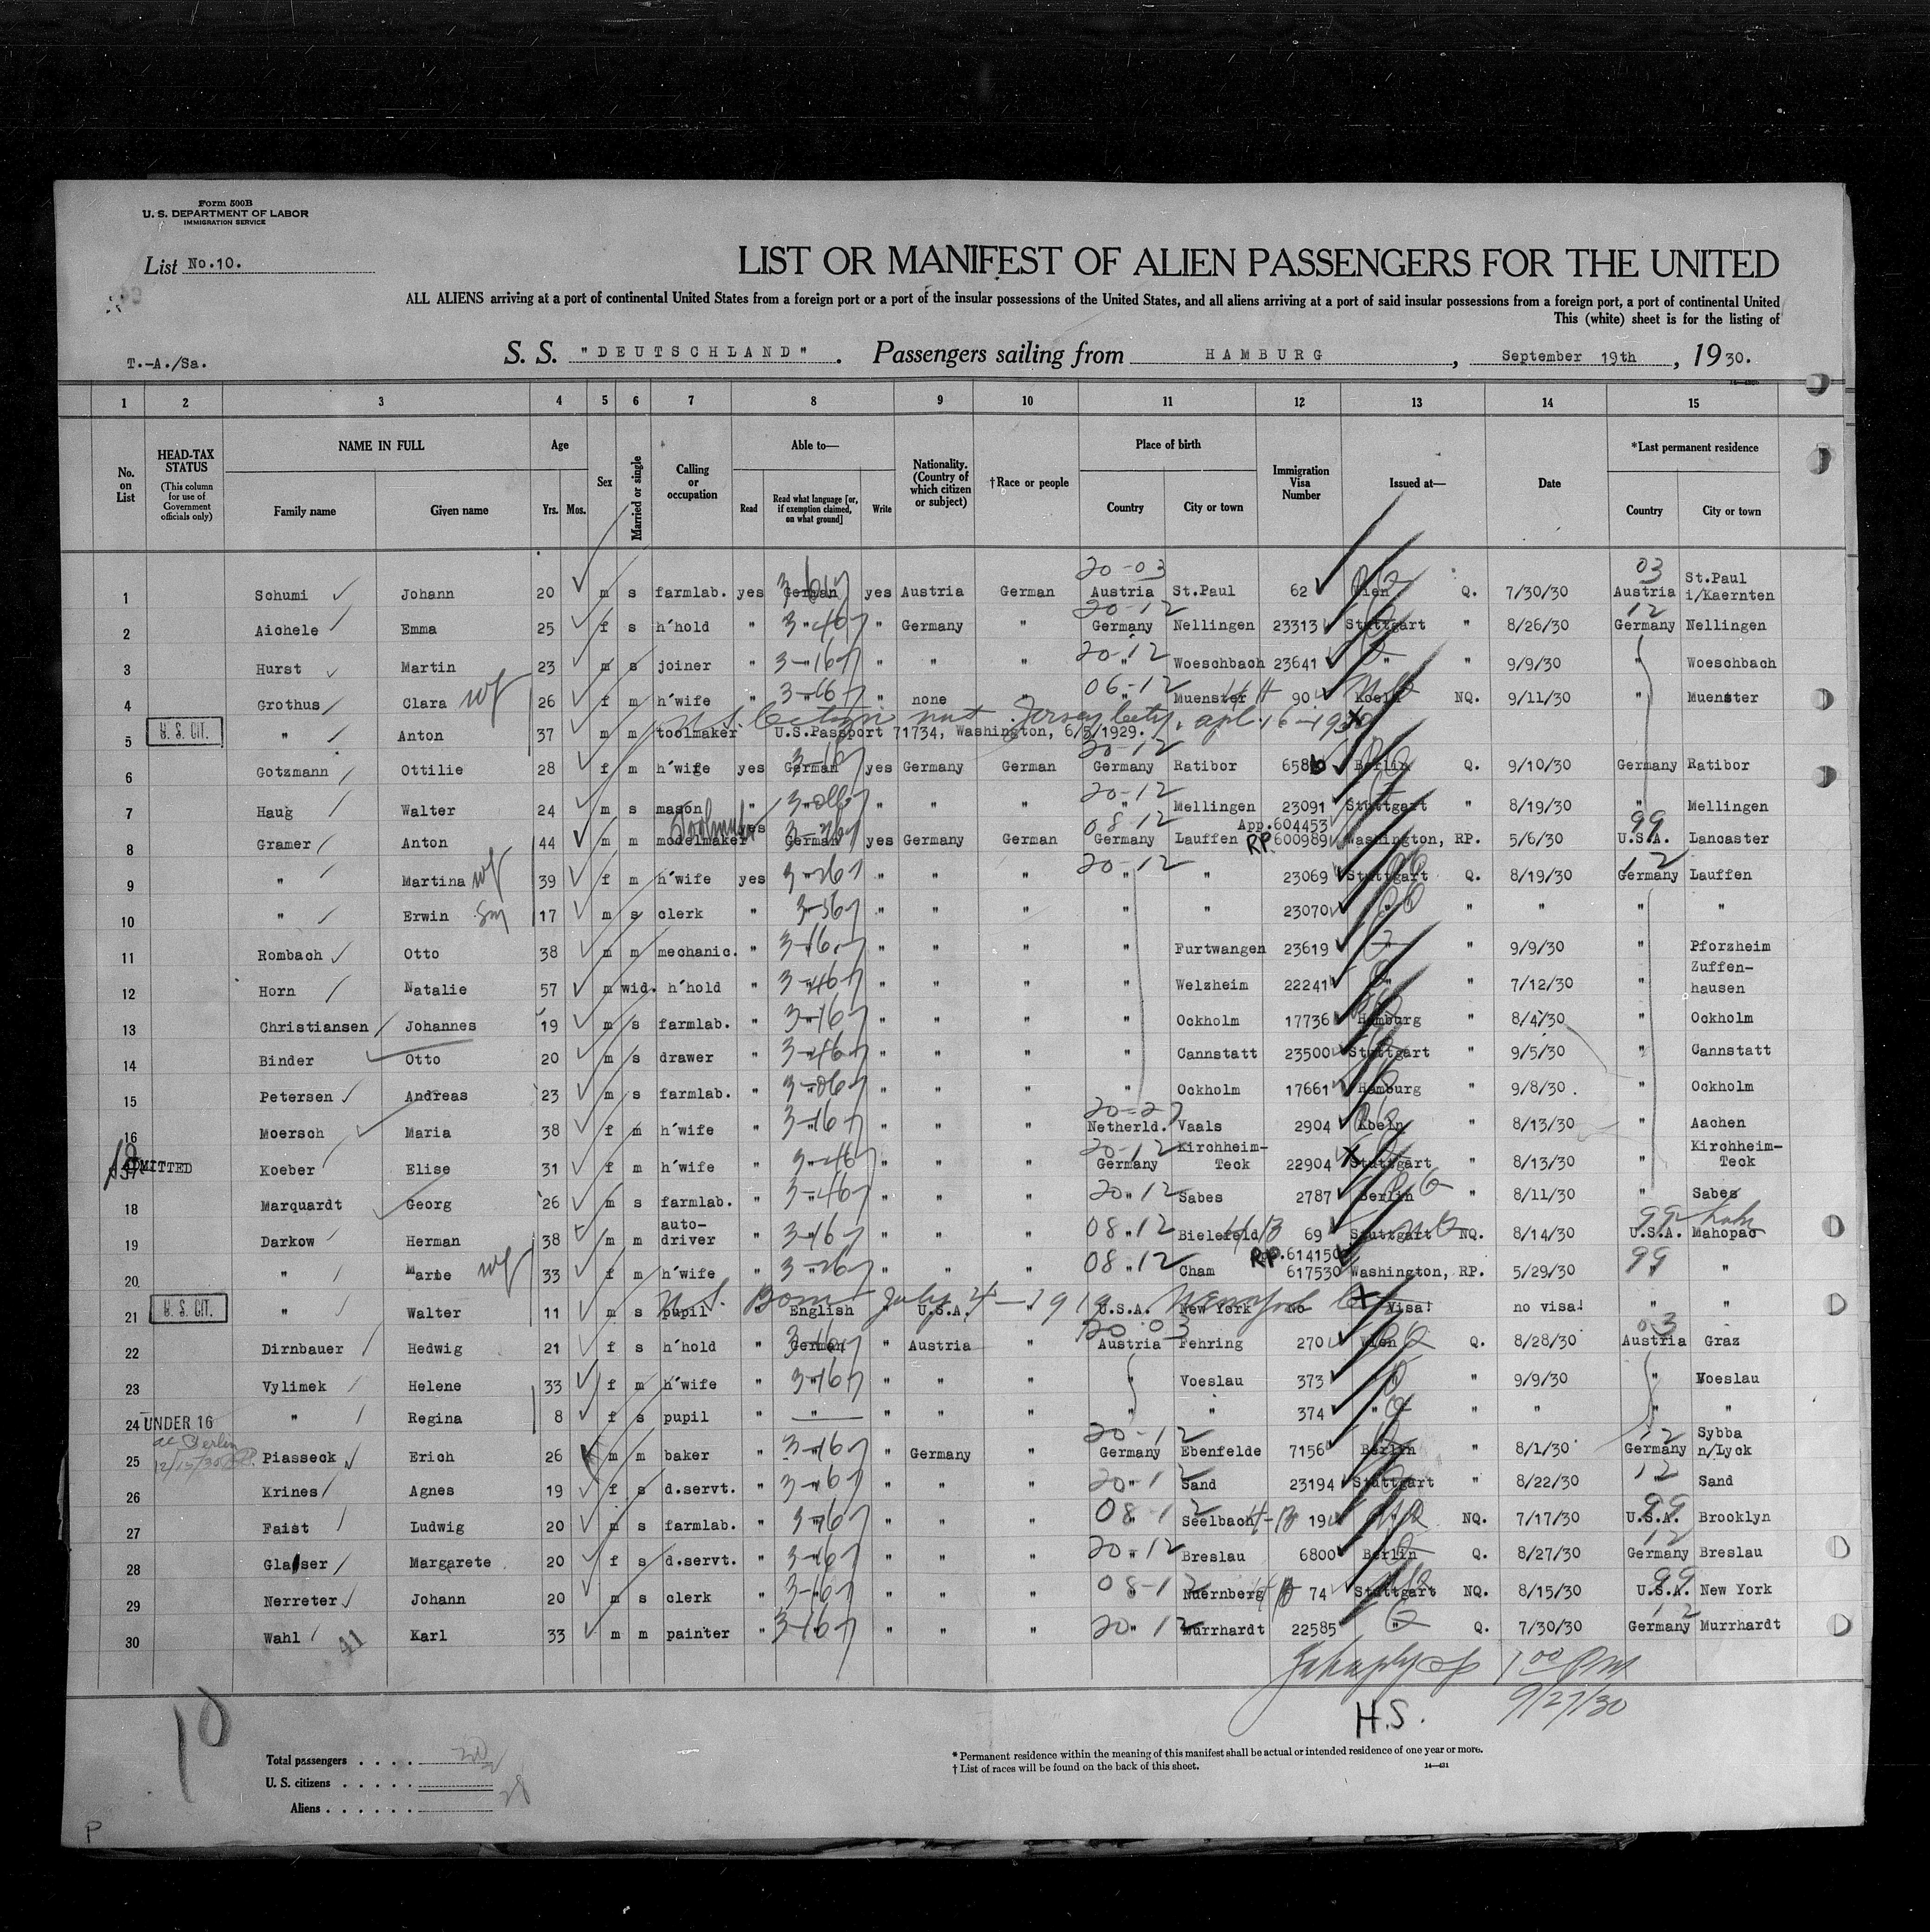 Form 500B
U. S. DEPARTMENT OF LABOR
IMMIGRATION SERVICE
List No.10.
LIST OR MANIFEST OF ALIEN PASSENGERS FOR THE UNITED
ALL ALIENS arriving at a port of continental United States from a foreign port or a port of the insular possessions of the United States, and all aliens arriving at a port of said insular possessions from a foreign port, a port of continental United
This (white) sheet is for the listing of
T.-A./Sa.
S. S. "DEUTSCHLAND". Passengers sailing from HAMBURG, September 19th, 1930.
1 2 3 4 5 6 7 8 9 10 11 12 13 14 15
No. on List
HEAD-TAX STATUS (This column for use of Government officials only)
NAME IN FULL Family name Given name
Age Yrs. Mos.
Sex
Married or single
Calling or occupation
Able to— Read Read what language [or, if exemption claimed, on what ground] Write
Nationality. (Country of which citizen or subject)
†Race or people
Place of birth Country City or town
Immigration Visa Number
Issued at—
Date
*Last permanent residence Country City or town
20-03 03
1 Schumi Johann 20 m s farmlab. yes German yes Austria German Austria St.Paul 62 Wien Q. 7/30/30 Austria St.Paul i/Kaernten
20-12 12
2 Aichele Emma 25 f s h'hold " " " Germany " Germany Nellingen 23313 Stuttgart " 8/26/30 Germany Nellingen
20-12
3 Hurst Martin 23 m s joiner " " " " " " Woeschbach 23641 " " 9/9/30 " Woeschbach
06-12
4 Grothus Clara wf 26 f m h'wife " " " none " " Muenster 90 Koeln NQ. 9/11/30 " Muenster
U.S. Citizen nat Jersey City, apl. 16-1930
5 U. S. CIT. " Anton 37 m m toolmaker U.S.Passport 71734, Washington, 6/5/1929.
20-12
6 Gotzmann Ottilie 28 f m h'wife yes German yes Germany German Germany Ratibor 6580 Berlin Q. 9/10/30 Germany Ratibor
20-12
7 Haug Walter 24 m s mason " " " " " " Mellingen 23091 Stuttgart " 8/19/30 " Mellingen
08-12 App.604453 99
8 Gramer Anton 44 m m modelmaker yes German yes Germany German Germany Lauffen RP. 600989 Washington, RP. 5/6/30 U.S.A. Lancaster
20-12 12
9 " Martina wf 39 f m h'wife yes " " " " " " 23069 Stuttgart Q. 8/19/30 Germany Lauffen
10 " Erwin 17 m s clerk " " " " " " " 23070 " " " " "
11 Rombach Otto 38 m m mechanic. " " " " " " Furtwangen 23619 " " 9/9/30 " Pforzheim
12 Horn Natalie 57 m wid. h'hold " " " " " " Welzheim 22241 " " 7/12/30 " Zuffenhausen
13 Christiansen Johannes 19 m s farmlab. " " " " " " Ockholm 17736 Hamburg " 8/4/30 " Ockholm
14 Binder Otto 20 m s drawer " " " " " " Cannstatt 23500 Stuttgart " 9/5/30 " Cannstatt
15 Petersen Andreas 23 m s farmlab. " " " " " " Ockholm 17661 Hamburg " 9/8/30 . " Ockholm
16 Moersch Maria 38 f m h'wife " " " " " Netherld. Vaals 2904 Koeln " 8/13/30 " Aachen
20-12
ADMITTED Koeber Elise 31 f m h'wife " " " " " Germany Kirchheim-Teck 22904 Stuttgart " 8/13/30 " Kirchheim-Teck
20-12
18 Marquardt Georg 26 m s farmlab. " " " " " " Sabes 2787 Berlin " 8/11/30 " Sabes
08-12 99
19 Darkow Herman 38 m m auto-driver " " " " " " Bielefeld 69 Stuttgart NQ. 8/14/30 U.S.A. Mahopac
08-12 614150 99
20 " Marie wf 33 f m h'wife " " " " " " Cham 617530 Washington, RP. 5/29/30 " "
U.S. Born July 4-1919 New York
21 U. S. CIT. " Walter 11 m s pupil " English " U.S.A. " U.S.A. New York No Visa! no visa! " "
20-03 03
22 Dirnbauer Hedwig 21 f s h'hold " German " Austria " Austria Fehring 270 Wien Q. 8/28/30 Austria Graz
23 Vylimek Helene 33 f m h'wife " " " " " " Voeslau 373 " " 9/9/30 " Voeslau
24 UNDER 16 " Regina 8 f s pupil " " " " " " " 374 " " " " "
20-12 12
25 Piasseck Erich 26 m m baker " " " Germany " Germany Ebenfelde 7156 Berlin " 8/1/30 Germany Sybba n/Lyck
20-12 12
26 Krines Agnes 19 f s d.servt. " " " " " " Sand 23194 Stuttgart " 8/22/30 " Sand
08-12 99
27 Faist Ludwig 20 m s farmlab. " " " " " " Seelbach 19 " NQ. 7/17/30 U.S.A. Brooklyn
20-12 12
28 Glaser Margarete 20 f s d.servt. " " " " " " Breslau 6800 Berlin Q. 8/27/30 Germany Breslau
08-12 99
29 Nerreter Johann 20 m s clerk " " " " " " Nuernberg 74 Stuttgart NQ. 8/15/30 U.S.A. New York
20-12 12
30 Wahl Karl 33 m m painter " " " " " " Murrhardt 22585 " Q. 7/30/30 Germany Murrhardt
41
1 00 PM
9/27/30
H.S.
10
Total passengers . . . .
U. S. citizens . . . . .
Aliens . . . . . . 28
* Permanent residence within the meaning of this manifest shall be actual or intended residence of one year or more.
† List of races will be found on the back of this sheet.
14—431
P